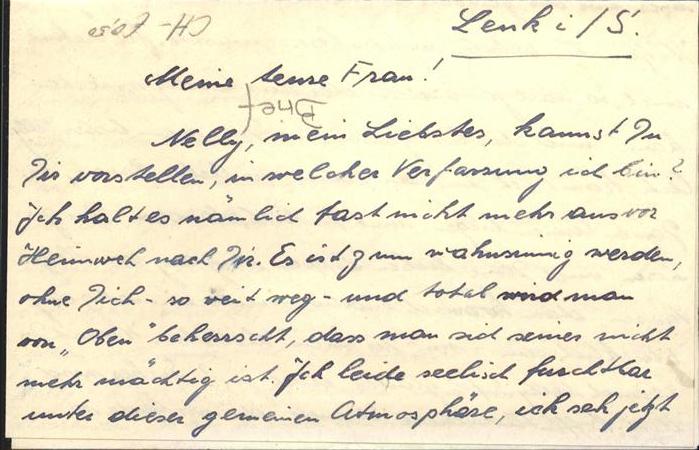 Lenk i/S.
Meine teure Frau!
Nelly, mein Liebstes, kannst Du
Dir vorstellen, in welcher Verfassung ich bin?
Ich halt es nämlich fast nicht mehr aus vor
Heimweh nach Dir. Es ist zum wahnsinnig werden,
ohne Dich - so weit weg - und total wird man
von „Oben" beherrscht, dass man sich seiner nicht
mehr mächtig ist. Ich leide seelisch furchtbar
unter dieser gemeinen Atmosphäre, ich seh jetzt